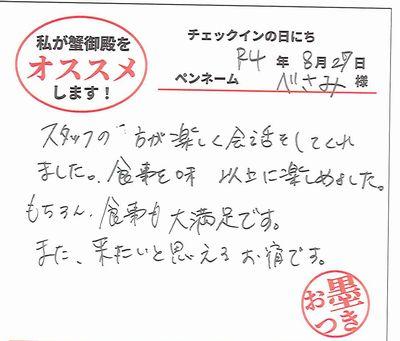 私が蟹御殿を
オススメ
します！
チェックインの日にち
R4年 8月27日
ペンネーム べさみ 様
スタッフの 方が楽しく会話をしてくれ
ました。食事を味 以上に楽しめました。
もちろん、食事も大満足です。
また、来たいと思えるお宿です。
お墨つき